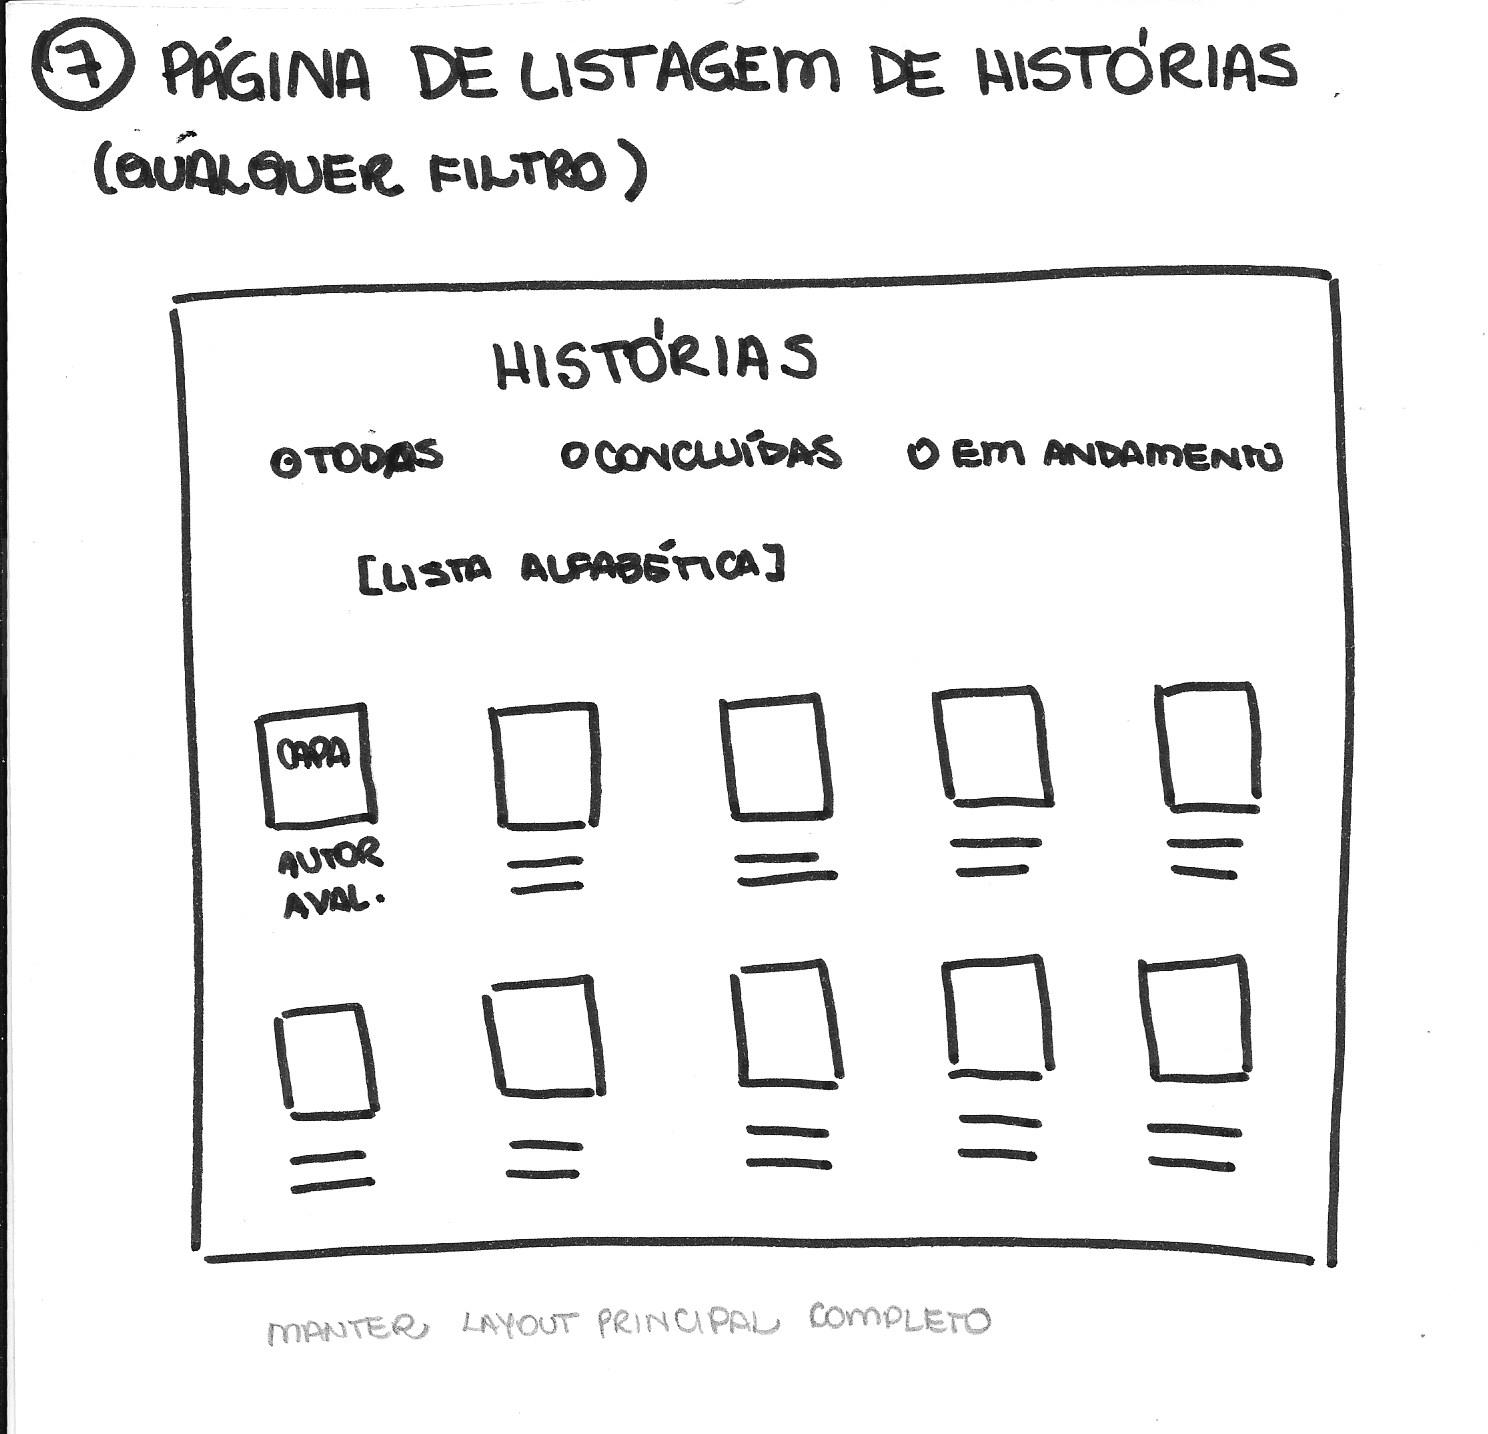 7 PÁGINA DE LISTAGEM DE HISTÓRIAS
(QUALQUER FILTRO)
HISTÓRIAS
TODAS CONCLUÍDAS EM ANDAMENTO
[LISTA ALFABÉTICA]
CAPA
AUTOR
AVAL.
MANTER LAYOUT PRINCIPAL COMPLETO